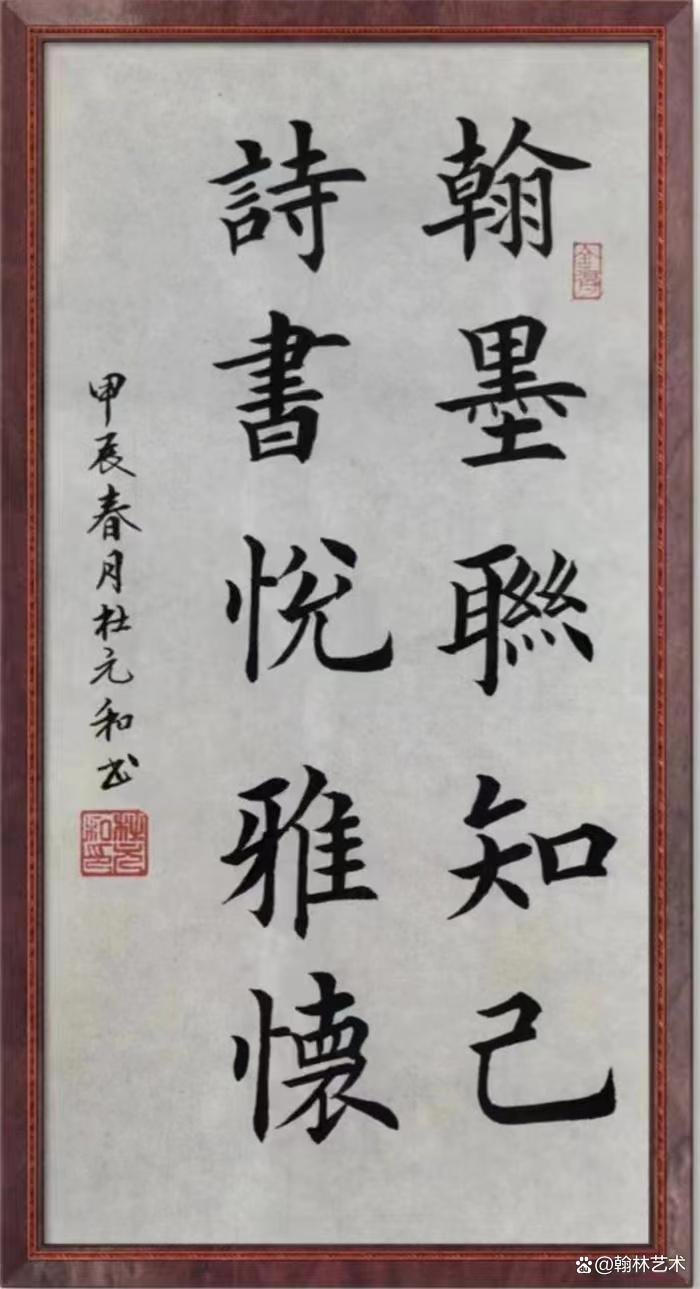 翰墨聯知己
詩書悅雅懷
甲辰春月杜元和书
杜元和印
@翰林艺术